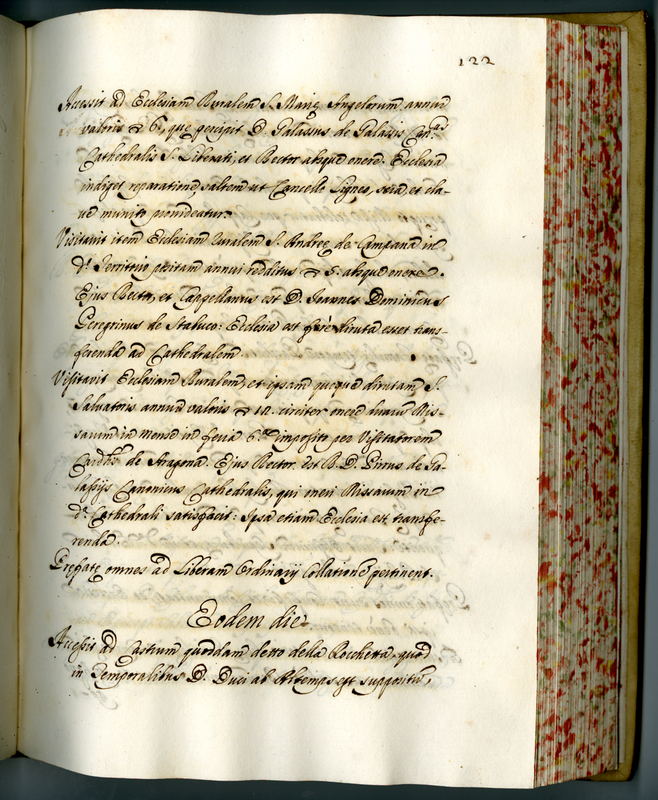 122
Accessit ad Ecclesiam Ruralem S. Marię Angelorum annui
valoris 6, quę percipit D. Galassus de Galassis Can.cus
Cathedralis S. Liberati, et Rector absque onere. Ecclesia
indiget reparatione saltem ut Cancelle Ligneo, sera, et cla-
ve munito provideatur.
Visitavit item Ecclesiam Ruralem S. Andreę de Campana in
d.o Territorio sitam annui redditus 5. absque onere.
Ejus Rector, et Cappellanus est D. Joannes Dominicus
Peregrinus de Stabueo: Ecclesia est fere diruta esset trans-
ferenda ad Cathedralem.
Visitavit Ecclesiam Ruralem, et ipsam pęque dirutam S.
Salvatoris annui valoris 12. circiter onere duarum Mis-
sarum in mense in feria 6.ta imposito per Visitatorem
Card.lis de Aragona. Ejus Rector est R. D. Pirrus de Ga-
lassijs Canonicus Cathedralis, qui oneri Missarum in
d.a Cathedrali satisfacit: Ipsa etiam Ecclesia est transfe-
renda.
Prefatę omnes ad Liberam Ordinarij Collationem pertinent.
Eodem die
Accessit ad Castrum quoddam detto della Rocchetta quod
in Temporalibus D. Duci ab Altemps est suppositum,